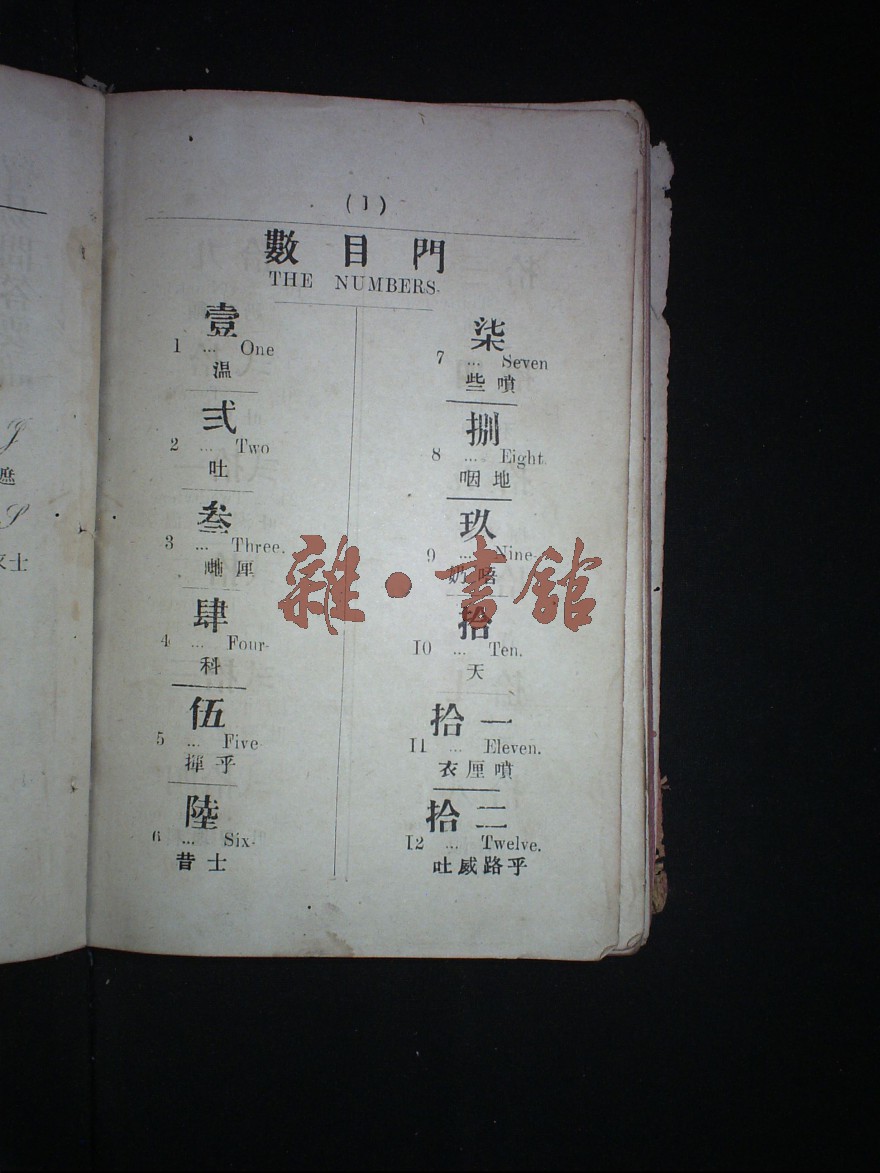 (1)
數目門
THE NUMBERS.
壹
1 ... One
温
弍
2 ... Two
吐
叁
3 ... Three.
哋厘
肆
4 ... Four-
科
伍
5 ... Five
揮乎
陸
6 ... Six-
昔士
柒
7 ... Seven
些噴
捌
8 ... Eight
咽地
玖
9 ... Nine
奶唔
拾
10 ... Ten.
天
拾一
11 ... Eleven.
衣厘噴
拾二
12 ... Twelve.
吐威路乎
雜·書館
J
遮
S
士